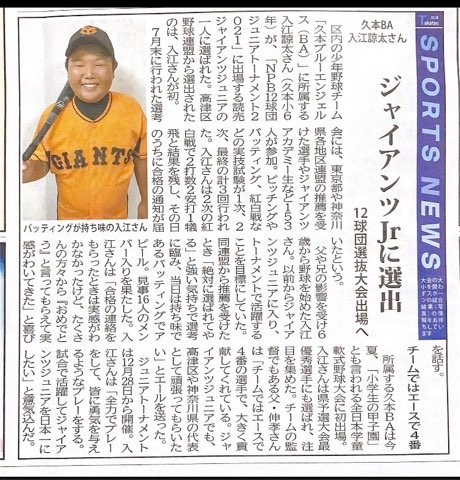 Takatsu
SPORTS NEWS
大会の大小を問わずスポーツの
試合結果・写真・情報をお待ちしています
久本BA
入江諒太さん
ジャイアンツJrに選出
12球団選抜大会出場へ
GIANTS
バッティングが持ち味の入江さん
区内の少年野球チーム
「久本ブルーエンジェル
ス(BA)」に所属する
入江諒太さん(久本小6
年)が、「NPB12球団
ジュニアトーナメント2
021」に出場する読売
ジャイアンツジュニアの
一人に選ばれた。高津区
野球連盟から選出された
のは、入江さんが初。
7月末に行われた選考
会には、東京都や神奈川
県各地区連盟の推薦を受
けた選手やジャイアンツ
アカデミー生など153
人が参加。ピッチングや
バッティング、紅白戦な
どの実技試験が1次、2
次、最終の計3回行われ
た。入江さんは2次の紅
白戦で2打数2安打1犠
飛と結果を残し、その日
のうちに合格の通知が届
いたという。
父や兄の影響を受け6
歳から野球を始めた入江
さん。以前からジャイア
ンツジュニアに入り、
トーナメントで活躍する
ことを目標にしていた。
同連盟から推薦を受けた
とき「絶対に選ばれてや
る」と強い気持ちで選考
に臨み、当日は持ち味で
あるバッティングでア
ピール。見事16人のメン
バー入りを果たした。入
江さんは「合格の連絡を
もらったときは実感がわ
かなかったけど、たくさ
んの方々から『おめでと
う』と言ってもらえて実
感がわいてきた」と喜び
を話す。
チームではエースで4番
所属する久本BAは今
夏、「小学生の甲子園」
とも言われる全日本学童
軟式野球大会に初出場。
入江さんは県予選大会最
優秀選手にも選ばれ、注
目を集めた。チームの監
督でもある父・伸孝さん
は「チームではエースで
4番の選手で、大きく貢
献してくれている。ジャ
イアンツジュニアでも、
高津区や神奈川県の代表
として頑張ってもらいた
い」とエールを送った。
ジュニアトーナメント
は12月28日から開催。入
江さんは「全力でプレー
をして、皆に勇気を与え
るようなプレーをする。
試合で活躍してジャイア
ンツジュニアを日本一に
したい」と意気込んだ。